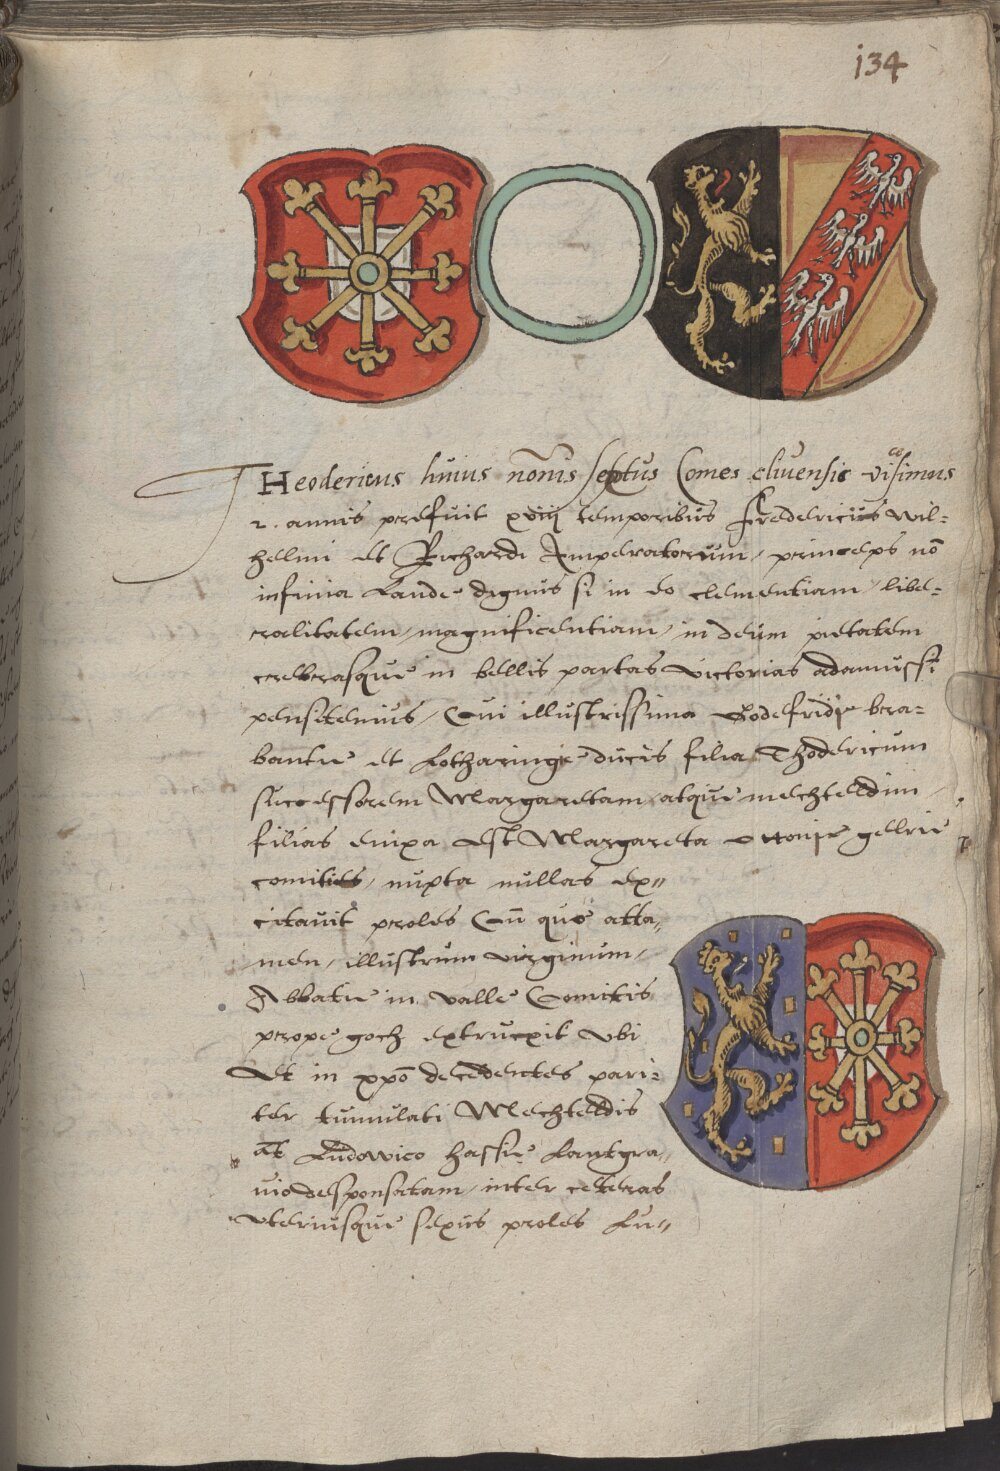 134
THeodericus huius no͞nis septus Comes cliuensis visimus
2. annis prefuit xviij temporibus Frederici Wil-
helmi et Richardi Imperatorum / princeps no͞
infima Laude dignus si in eo clementiam / libe-
ralitatem / magnificentiam / in deum pietatem
crebrasque in bellis partas victorias adamussi͞
pensitemus / Cui illustrissima Godefridi bra-
bantie et Lotharingie ducis filia Thodericum
successorem Margaretam atque mechteldim
filias enixa est Margareta ottonis gellrie
comitis / nupta nullas ex„
citauit proles Cu͞ quo atta„
men / illustrum virginum /
Abbatie in valle Comitis
prope goch extruxit vbi
et in xpo͞ decedentes pari-
ter tumulati Mechteldis
at Ludowico hassie Lantgra„
uio desponsatam / inter ceteras
vtriusque sexus proles Lu„